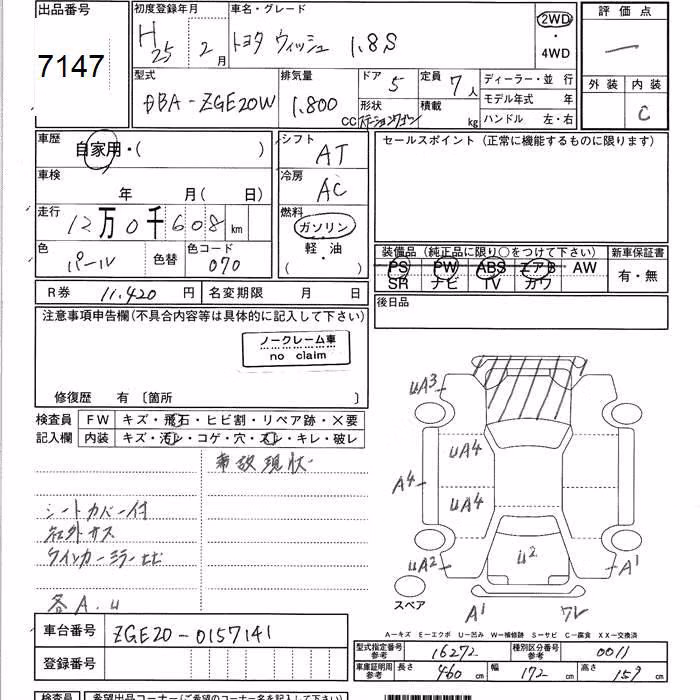 出品番号
7147
初度登録年月
H 25 2 月
車名・グレード
トヨタ ウィッシュ 1.8S
2WD
・
4WD
評価点
外装 内装
C
型式
DBA-ZGE20W
排気量
1,800 CC
ドア 5
形状
ステーションワゴン
定員 7 人
積載 kg
ディーラー・並 行
モデル年式 年
ハンドル 左・右
車歴
自家用・( )
車検
年 月( 日)
走行
12万0千608 km
色
パール
色替
色コード
070
R券 11,420 円
名変期限 月 日
シフト
AT
冷房
AC
燃料
ガソリン
軽・油
( ・ )
セールスポイント (正常に機能するものに限ります)
装備品 (純正品に限り○をつけて下さい)
PS PW ABS エアB AW
SR ナビ TV カワ
新車保証書
有・無
後日品
注意事項申告欄(不具合内容等は具体的に記入して下さい)
ノークレーム車
no claim
修復歴 有 〔箇所 〕
検査員
記入欄
FW キズ・飛石・ヒビ割・リペア跡・×要
内装 キズ・汚レ・コゲ・穴・スレ・キレ・破レ
事故現状
シートカバー付
ウインカーミラーヒビ
各A.U
UA3
UA4
A4
UA4
UA2
U2
A1
A1
スペア
A―キズ E―エクボ U―凹み W―補修跡 S―サビ C―腐食 XX―交換済
車台番号
ZGE20-0157141
登録番号
型式指定番号
参考
16272
種別区分番号
参考
0011
車庫証明用
参考
長さ 460 cm
幅 172 cm
高さ 159 cm
検査員
希望出品コーナー(ご希望のコーナー名を記入して下さい)